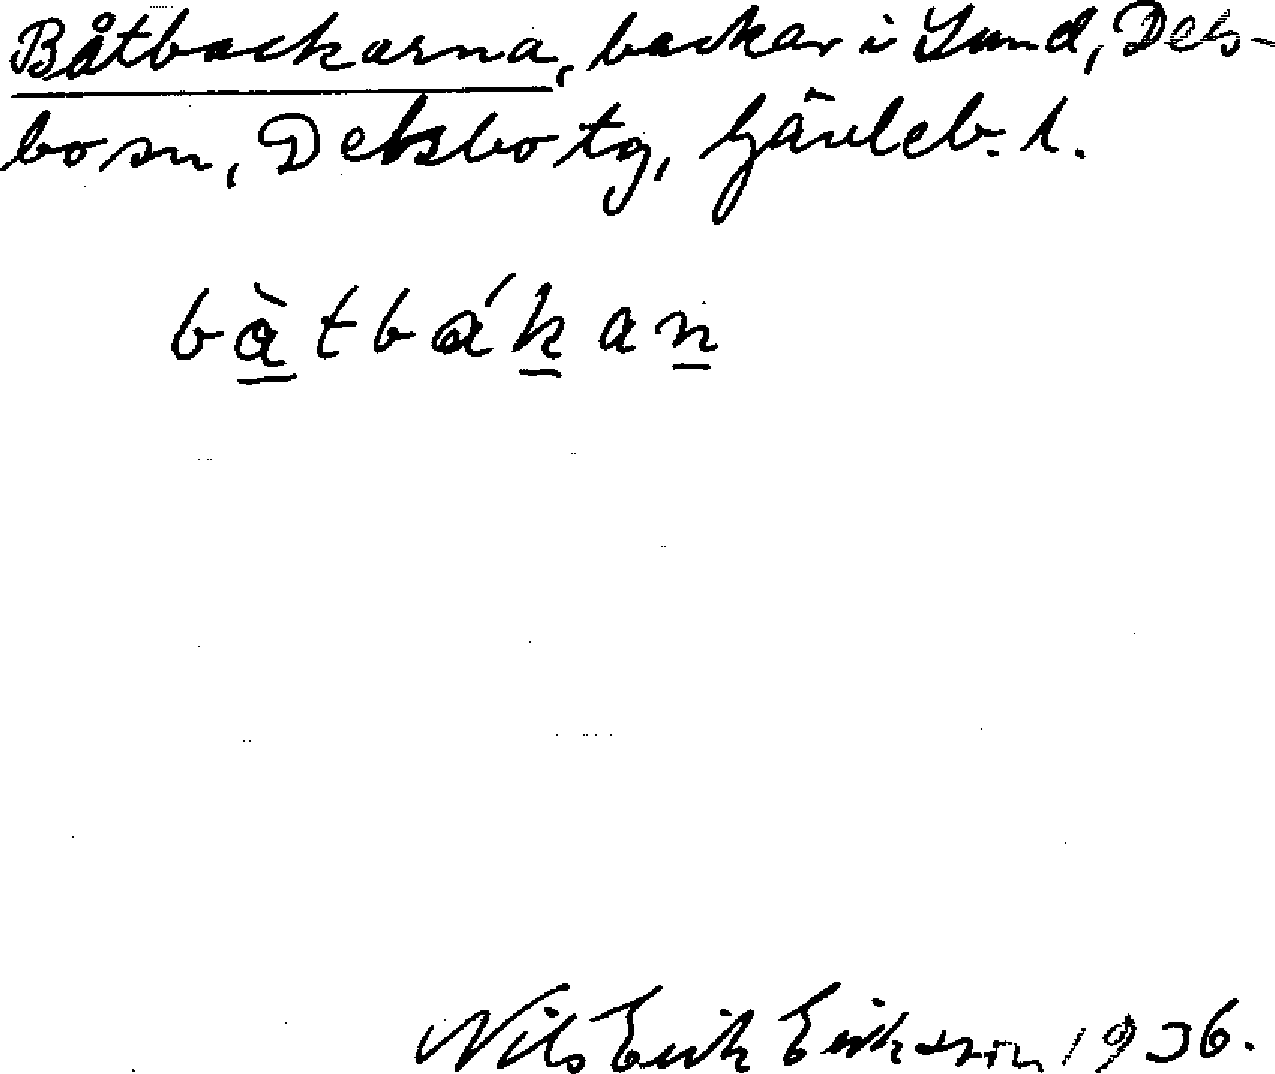 Båtbackarna, backar i Lund, Dels-
bo sn, Delsbo tg, Gävleb. l.
bàtbákan
Nils Erik Eriksson 1936.